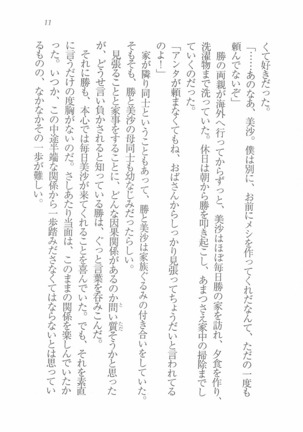 11
くて好きだった。
「……あのなあ、美沙。僕は別に、お前にメシを作ってくれなんて、ただの一度も
頼んでないぞ」
勝の両親が海外へ行ってからずっと、美沙はほぼ毎日勝の家を訪れ、夕食を作り、
洗濯物まで洗っていた。休日は朝から勝を叩き起こし、あまつさえ家中の掃除までし
ていくのだった。
「アンタが頼まなくてもね、おばさんからしっかり見張ってちょうだいと言われてる
のよ！」
家が隣り同士ということもあって、勝と美沙は家族ぐるみの付き合いをしていた。
そもそも、勝と美沙の母同士も幼なじみだったらしい。
見張ることと家事をすることに、どんな因果関係があるのか問い質そうかと思った
が、どうせ言い負かされると知っている勝は、ぐっと言葉を呑みこんだ。
それに勝も、本心では毎日美沙が来てくれることを喜んでいた。でも、それを素直
に言うだけの度胸がないのだ。さしあたり当面は、このままの関係を楽しんでいたか
った。いつか、この中途半端な関係から一歩踏みださなくてはならないとは思ってい
るものの、なかなかその一歩が難しい。